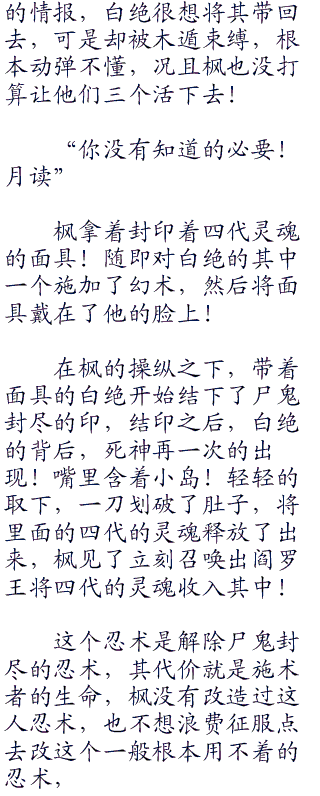 的情报，白绝很想将其带回
去，可是却被木遁束缚，根
本动弹不懂，况且枫也没打
算让他们三个活下去！
“你没有知道的必要！
月读”
枫拿着封印着四代灵魂
的面具！随即对白绝的其中
一个施加了幻术，然后将面
具戴在了他的脸上！
在枫的操纵之下，带着
面具的白绝开始结下了尸鬼
封尽的印，结印之后，白绝
的背后，死神再一次的出
现！嘴里含着小岛！轻轻的
取下，一刀划破了肚子，将
里面的四代的灵魂释放了出
来，枫见了立刻召唤出阎罗
王将四代的灵魂收入其中！
这个忍术是解除尸鬼封
尽的忍术，其代价就是施术
者的生命，枫没有改造过这
人忍术，也不想浪费征服点
去改这个一般根本用不着的
忍术，